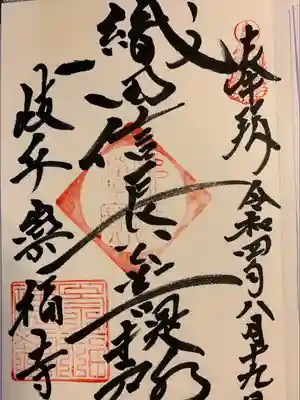 奉拝 令和四年八月十九日
織田信長公菩提所
岐阜 崇福寺